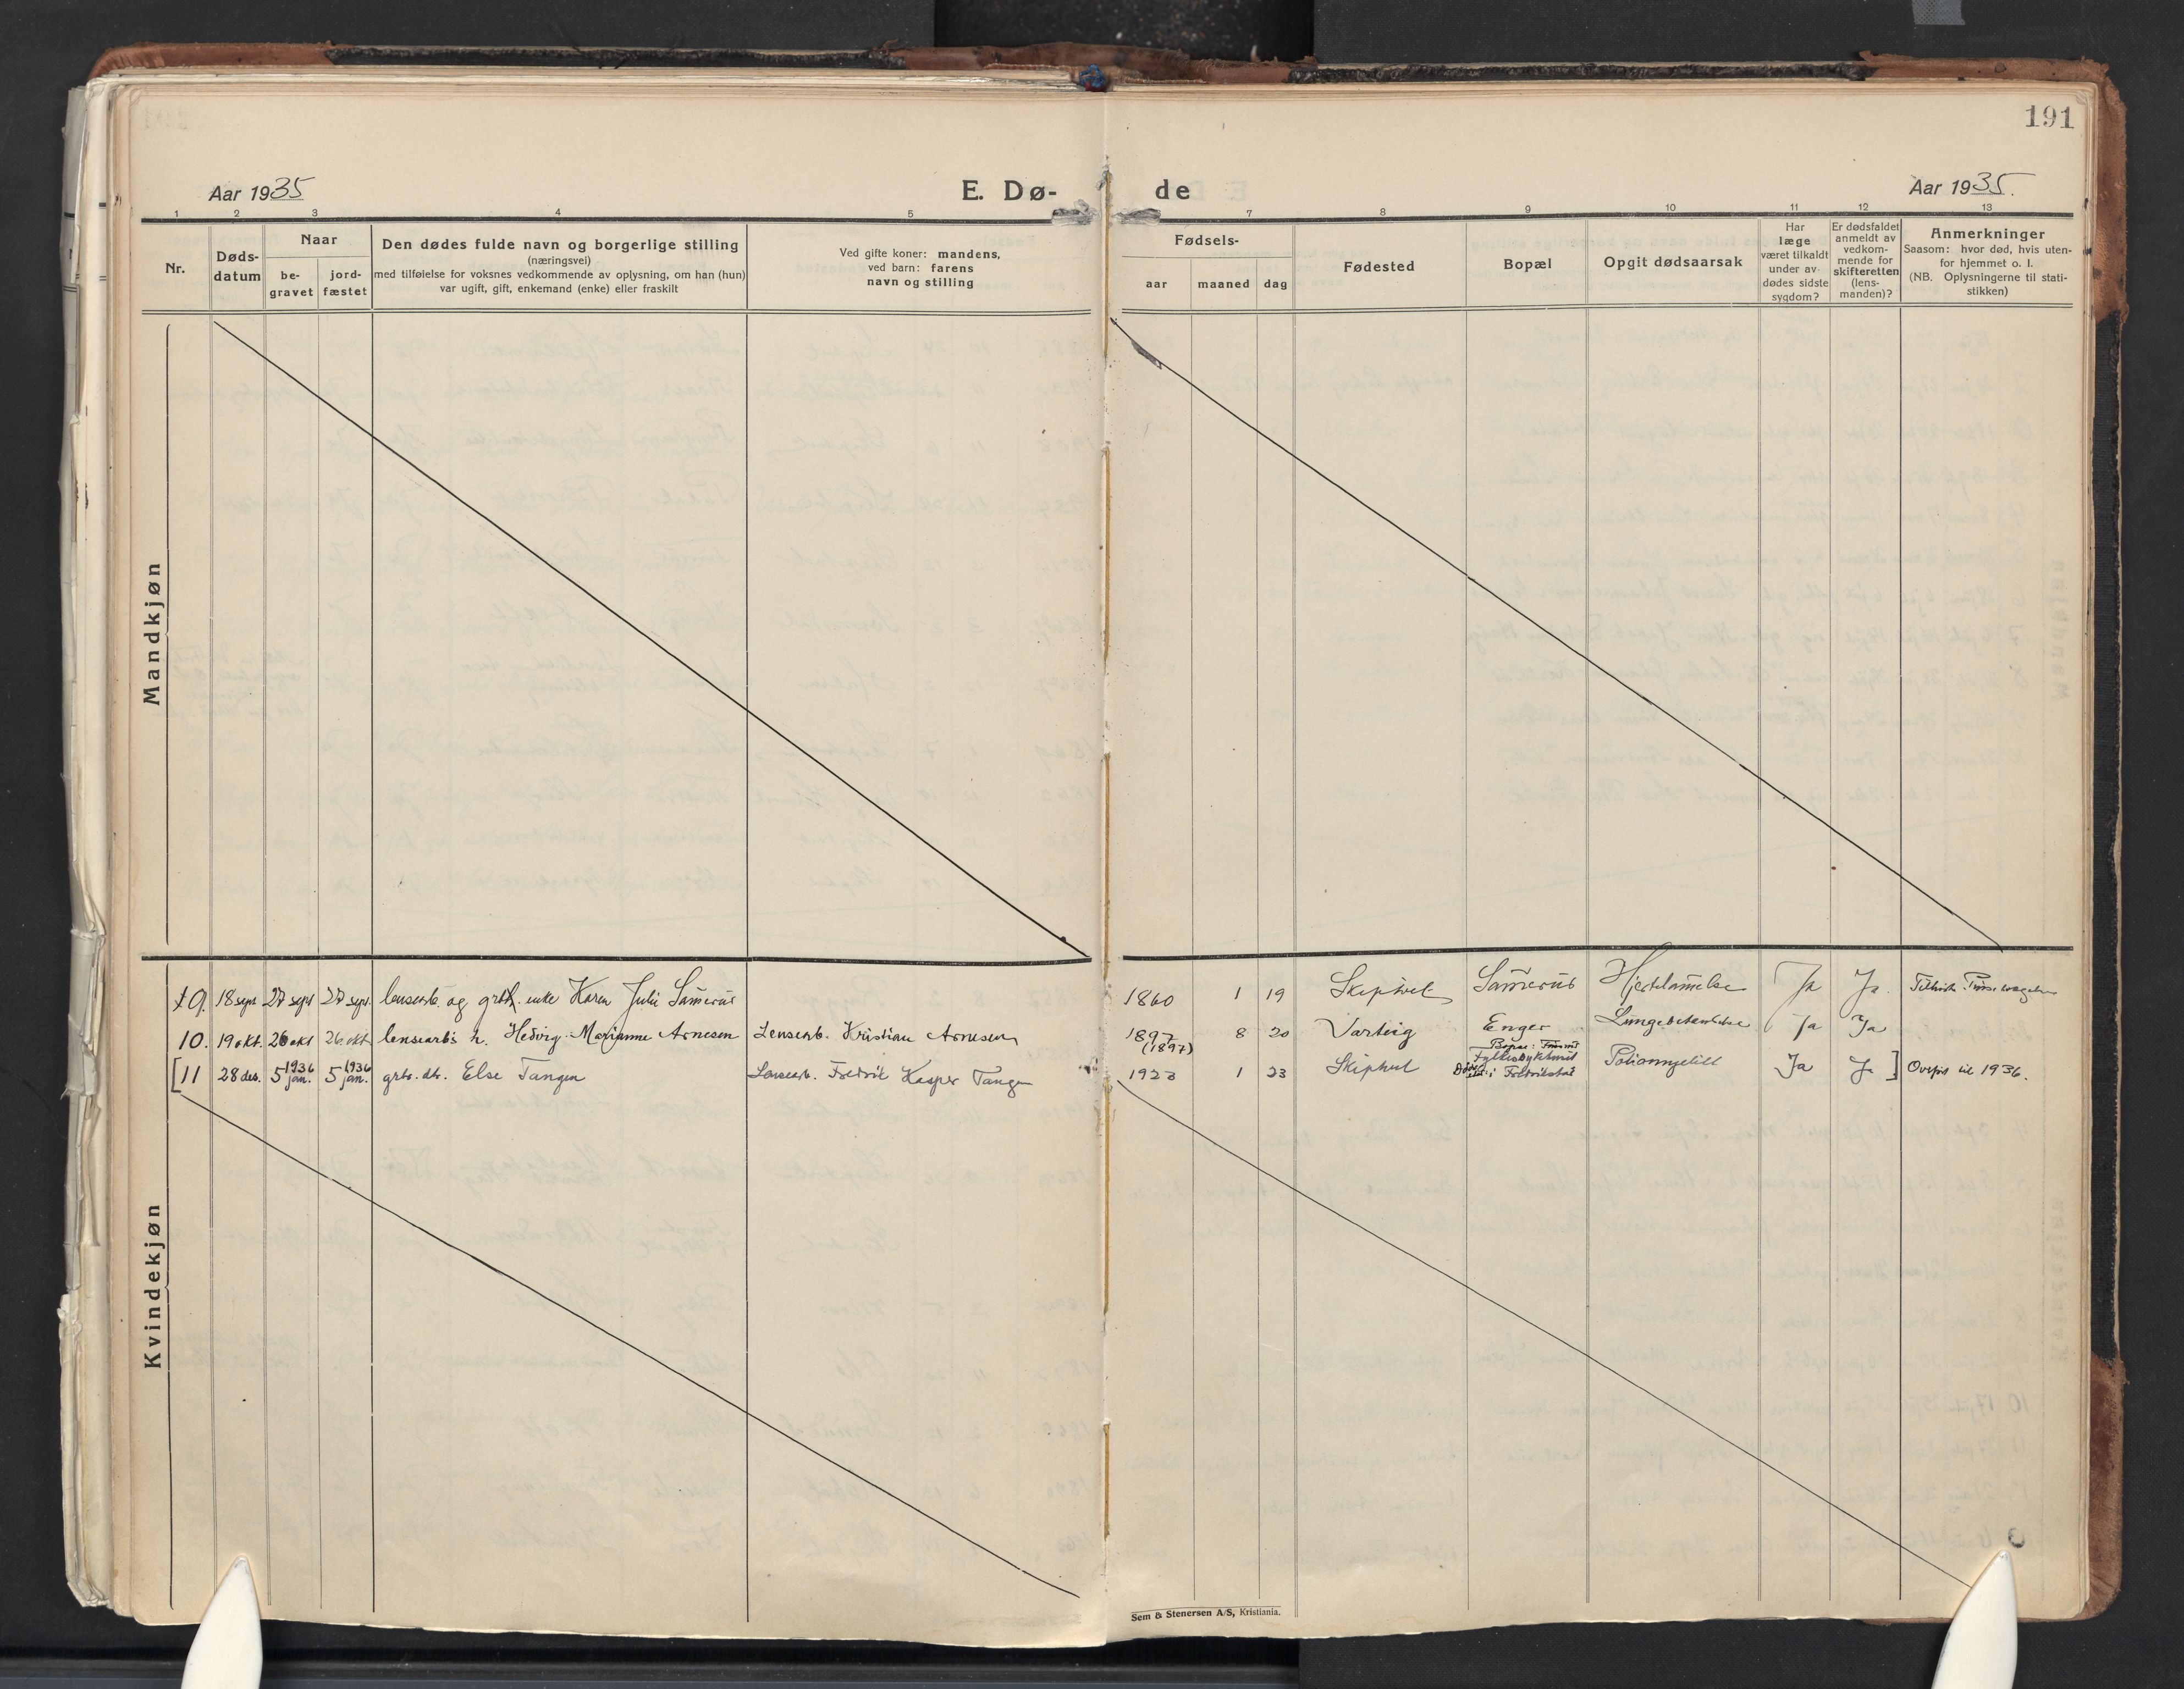 191
Aar 1935
E. Dø-
de
Aar 1935.
1 2 3 4 5 7 8 9 10 11 12 13
Nr.
Døds-
datum
Naar
be-
gravet
jord-
fæstet
Den dødes fulde navn og borgerlige stilling
(næringsvei)
med tilføielse for voksnes vedkommende av oplysning, om han (hun)
var ugift, gift, enkemand (enke) eller fraskilt
Ved gifte koner: mandens,
ved barn: farens
navn og stilling
Fødsels-
aar
maaned
dag
Fødested
Bopæl
Opgit dødsaarsak
Har
læge
været tilkaldt
under av-
dødes sidste
sygdom?
Er dødsfaldet
anmeldt av
vedkom-
mende for
skifteretten
(lens-
manden)?
Anmerkninger
Saasom: hvor død, hvis uten-
for hjemmet o. l.
(NB. Oplysningerne til stati-
stikken)
Mandkjøn
Kvindekjøn
9. 18 sept. 27 sept 27 sept. lensearb. og grbr. enke Karen Julie 1860 1 19 Skiptvet Hjertelammelse Ja Ja.
10. 19 okt. 26 okt 26 okt. lensearb's h. Hedvig Marianne Arnesen Lensearb. Kristian Arnesen 1897 (1897) 8 20 Varteig Enger Lungebetendelse Ja Ja
[11 28 des. 5 jan. 1936 5 jan. 1936 grbr. dt. Else Tangen Lensearb. Fredrik Kasper Tangen 1923 1 23 Skiptvet Fylkessykehuset i Fredrikstad Ja Ja ] Overført til 1936.
Sem & Stenersen A/S, Kristiania.